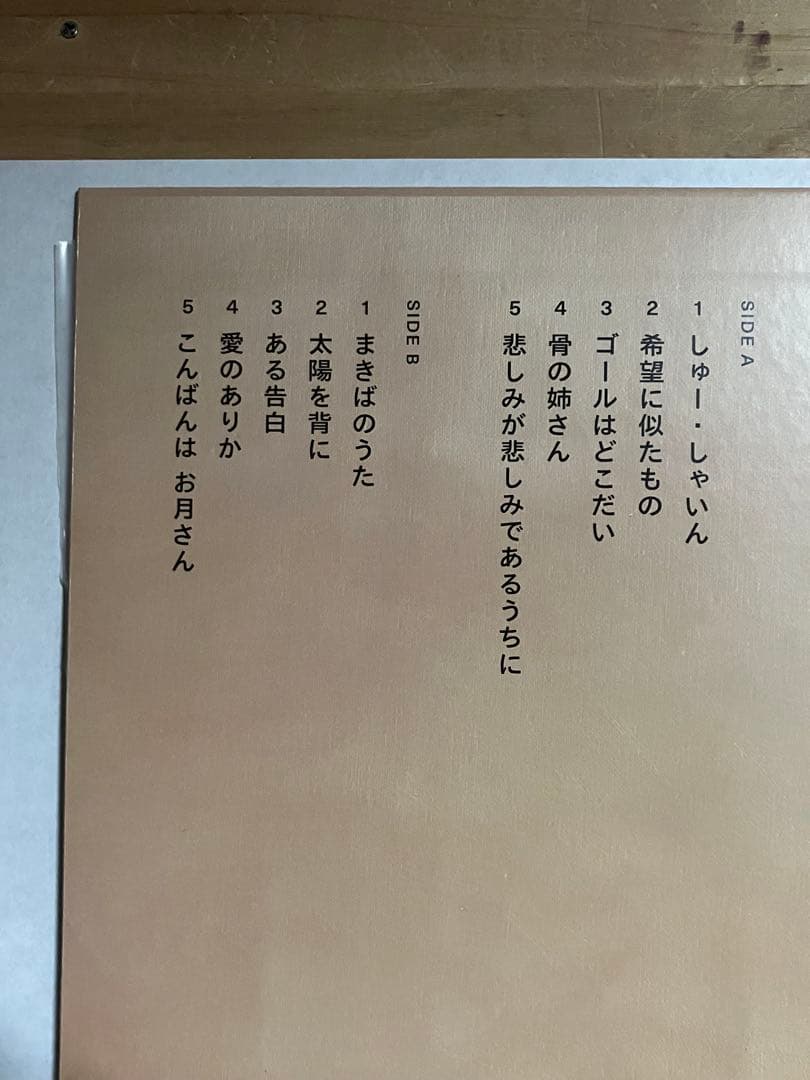 SIDE A
1 しゅー・しゃいん
2 希望に似たもの
3 ゴールはどこだい
4 骨の姉さん
5 悲しみが悲しみであるうちに
SIDE B
1 まきばのうた
2 太陽を背に
3 ある告白
4 愛のありか
5 こんばんは お月さん